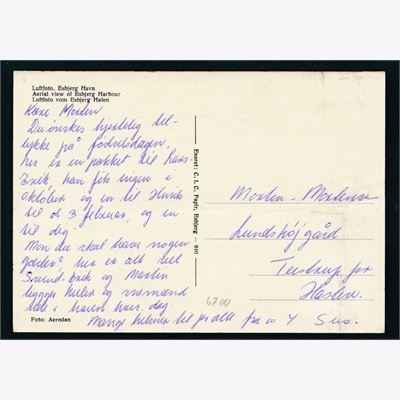 Luftfoto. Esbjerg Havn
Aerial view of Esbjerg Harbour
Luftfoto vom Esbjerg Hafen
Kære Morten
Du ønskes hjertelig til-
lykke på fødselsdagen,
her er en pakket til Lars
Erik, han fik ingen i
oktober og en til Henrik
til d 3 februar, og en
til dig.
Mon du skal have nogen
gæster? her er alt vel
Svend-Erik og Martin
bygger huler og snemænd
i haven hver dag.
Mange hilsner til jer alle fra os 4
Eneret: C. L. C. Papir, Esbjerg
810
Morten Mortensen
Lundshøjgård
Terstrup pr
Haslev
6700
Foto: Aerodan